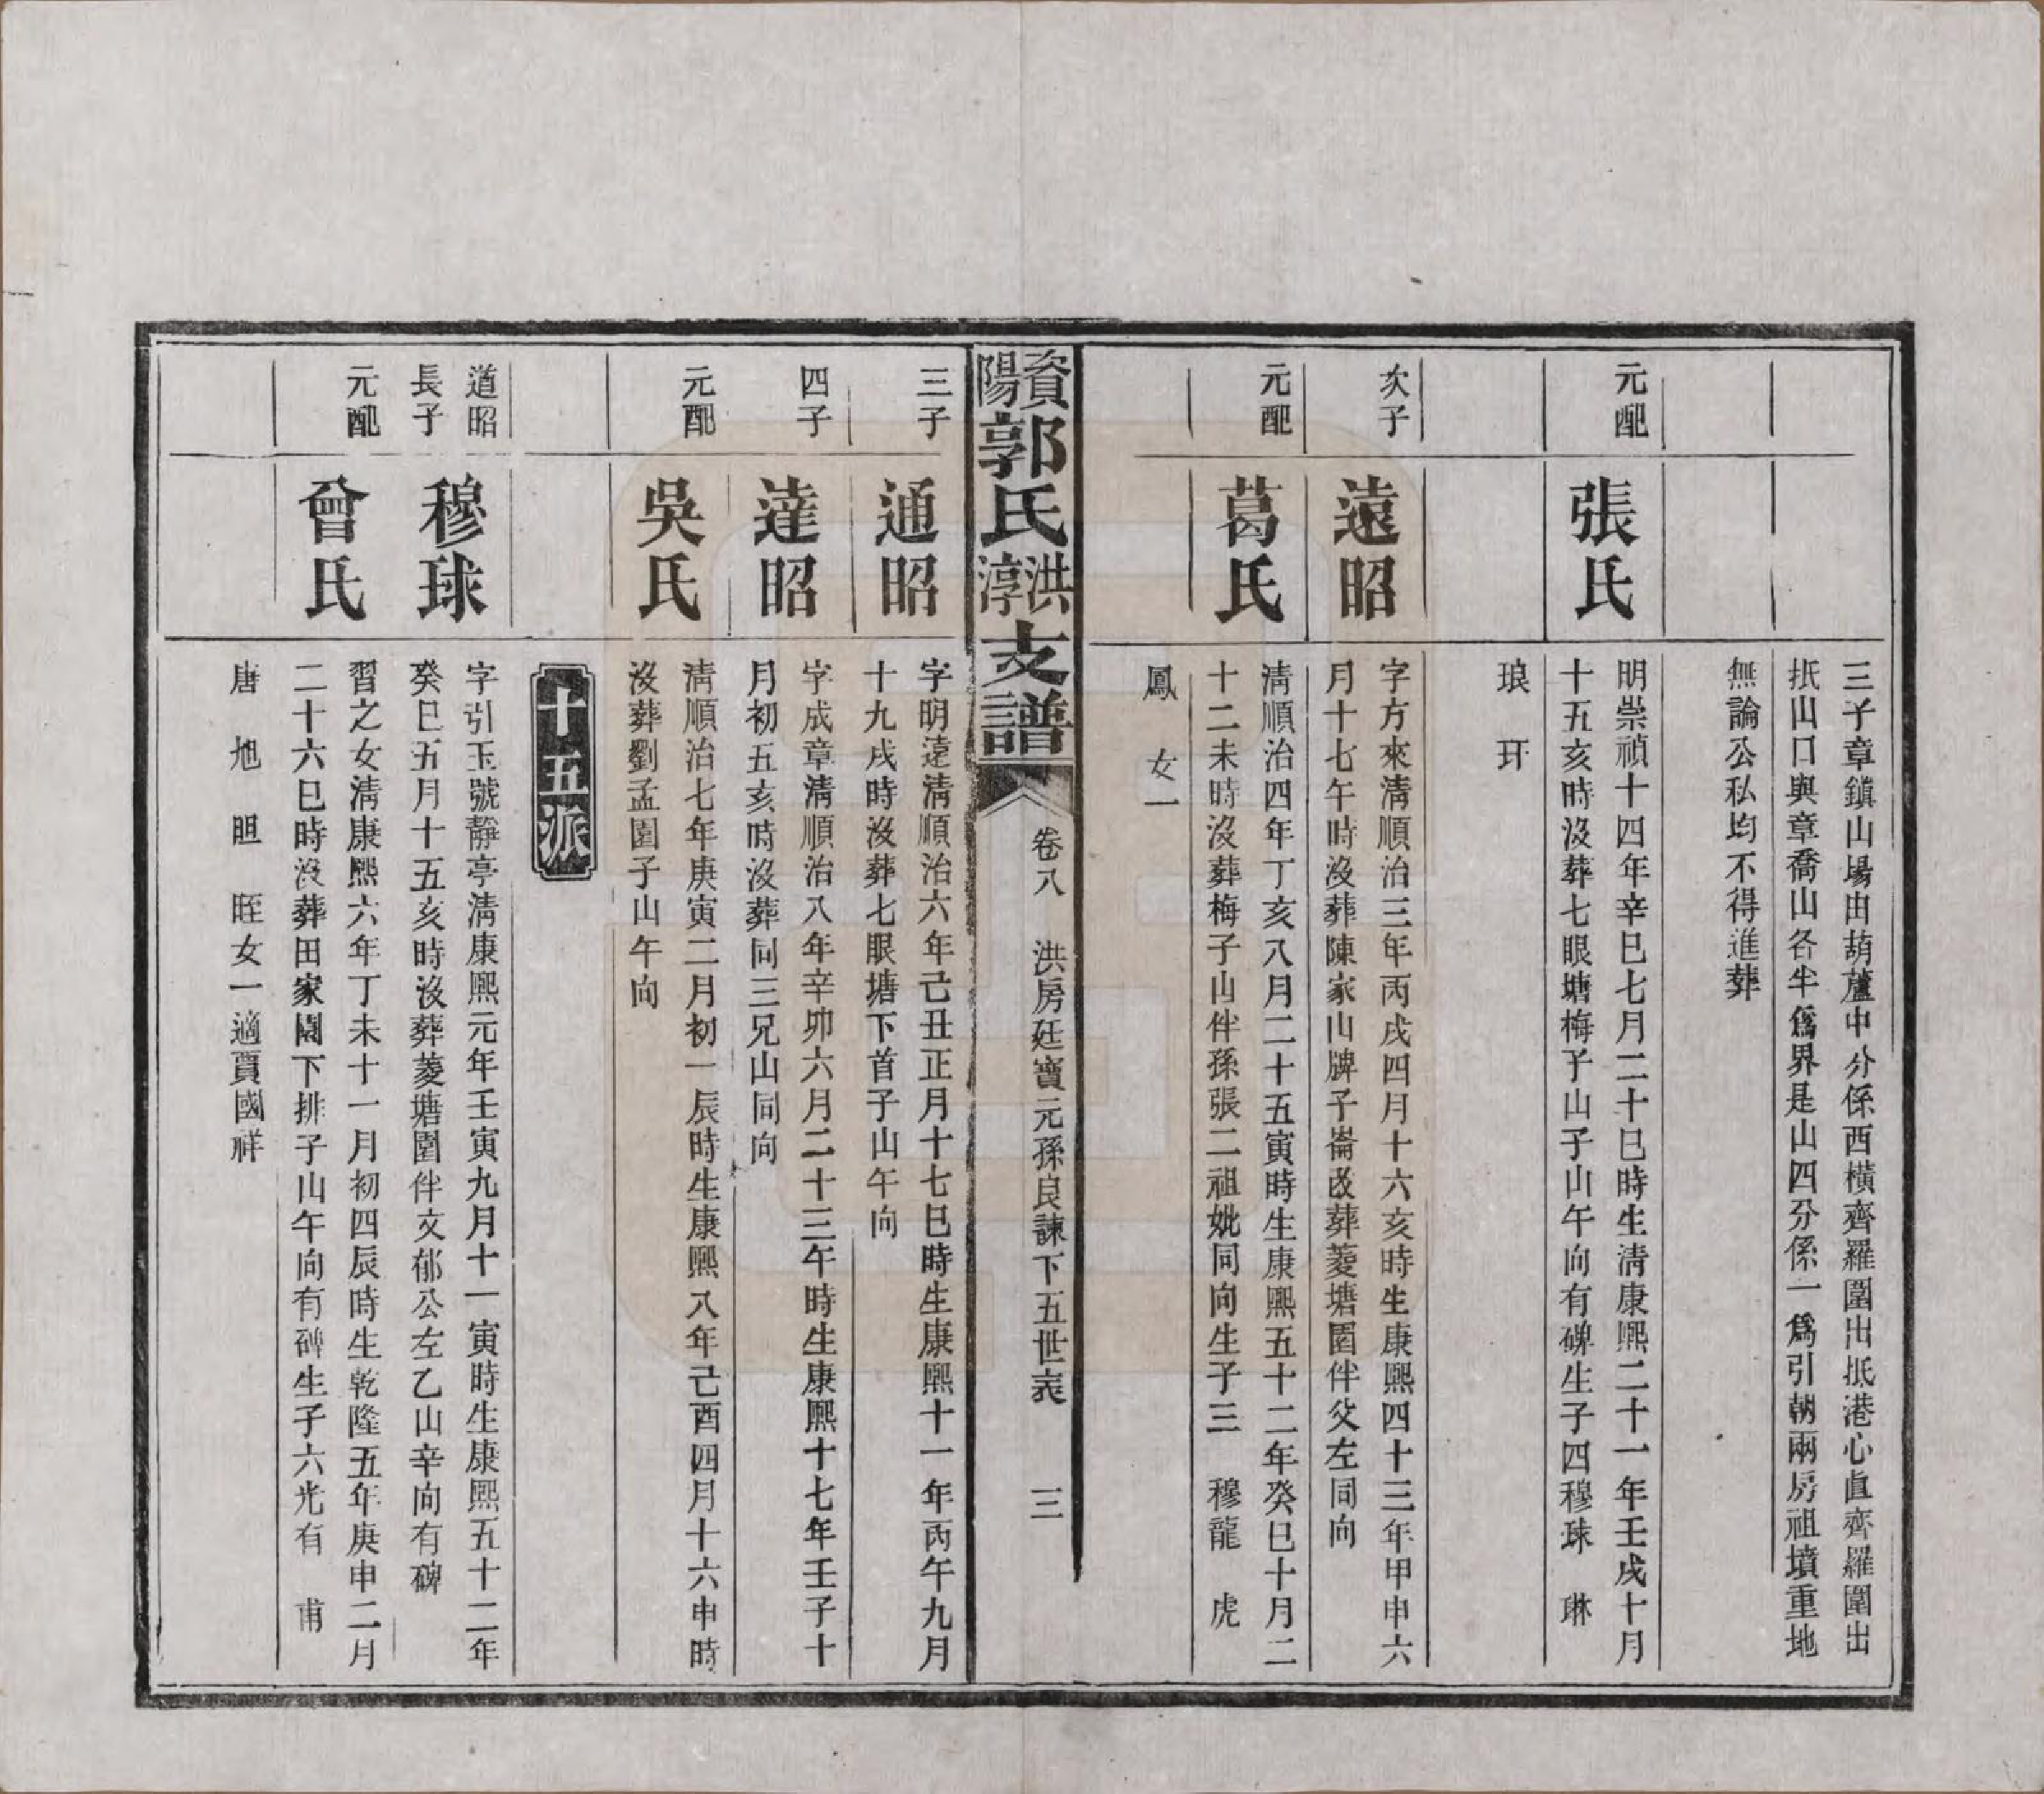 三子章鎮山場由葫蘆中分係西橫齊羅圍出抵港心直齊羅圍出
抵山口與章喬山各半爲界是山四分係一爲引朝兩房祖墳重地
無論公私均不得進葬
元配
張氏
明崇禎十四年辛巳七月二十巳時生淸康熙二十一年壬戌十月
十五亥時沒葬七眼塘梅子山子山午向有碑生子四穆球　琳
琅　玕
次子
遠昭
字方來淸順治三年丙戌四月十六亥時生康熙四十三年甲申六
月十七午時沒葬陳家山牌子崙改葬菱塘園伴父左同向
元配
葛氏
淸順治四年丁亥八月二十五寅時生康熙五十二年癸巳十月二
十二未時沒葬梅子山伴孫張二祖妣同向生子三　穆龍　虎
鳳　女一
資陽郭氏洪淳支譜
卷八　洪房廷寶元孫良諫下五世表　三
三子
通昭
字明遠淸順治六年己丑正月十七巳時生康熙十一年丙午九月
十九戌時沒葬七眼塘下首子山午向
四子
達昭
字成章淸順治八年辛卯六月二十三午時生康熙十七年壬子十
月初五亥時沒葬同三兄山同向
元配
吳氏
淸順治七年庚寅二月初一辰時生康熙八年己酉四月十六申時
沒葬劉孟園子山午向
十五派
道昭
長子
穆球
字引玉號靜亭淸康熙元年壬寅九月十一寅時生康熙五十二年
癸巳五月十五亥時沒葬菱塘園伴文郁公左乙山辛向有碑
元配
曾氏
習之女淸康熙六年丁未十一月初四辰時生乾隆五年庚申二月
二十六巳時沒葬田家園下排子山午向有碑生子六光有　甫
唐　旭　䏡　晊女一適賈國祥